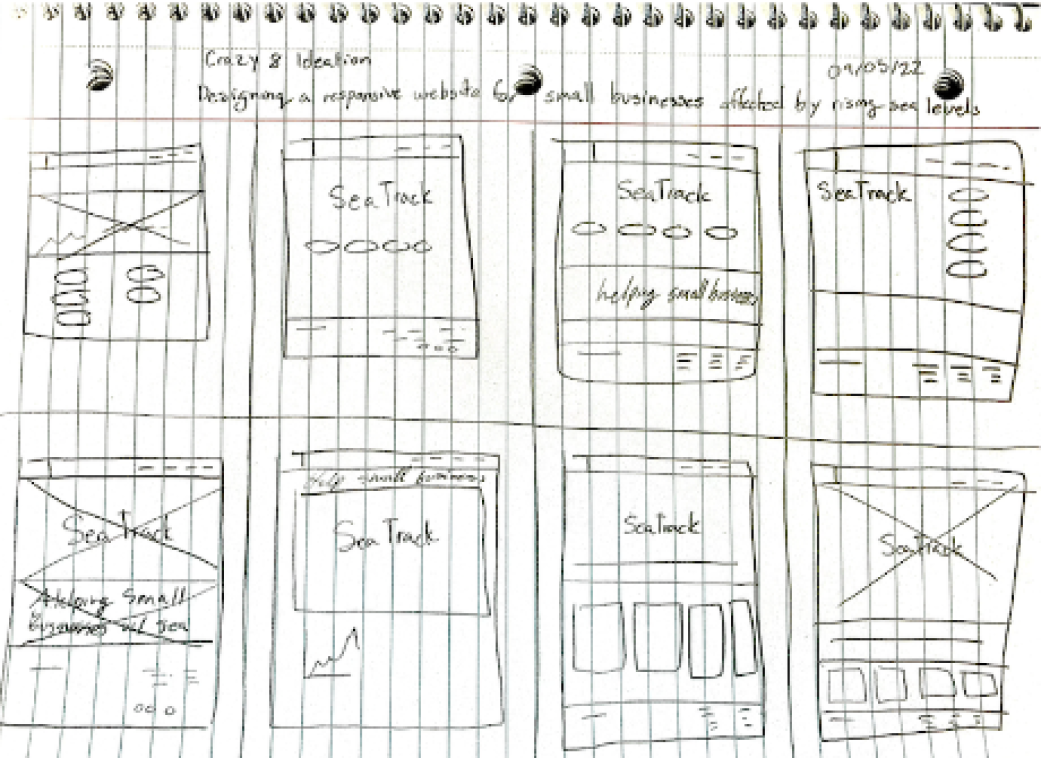 Crazy 8 Ideation
09/05/22
Designing a responsive website for small businesses affected by rising sea levels
SeaTrack
SeaTrack
helping small business
SeaTrack
SeaTrack
Helping Small
Businesses
sea
Help small business
SeaTrack
SeaTrack
SeaTrack